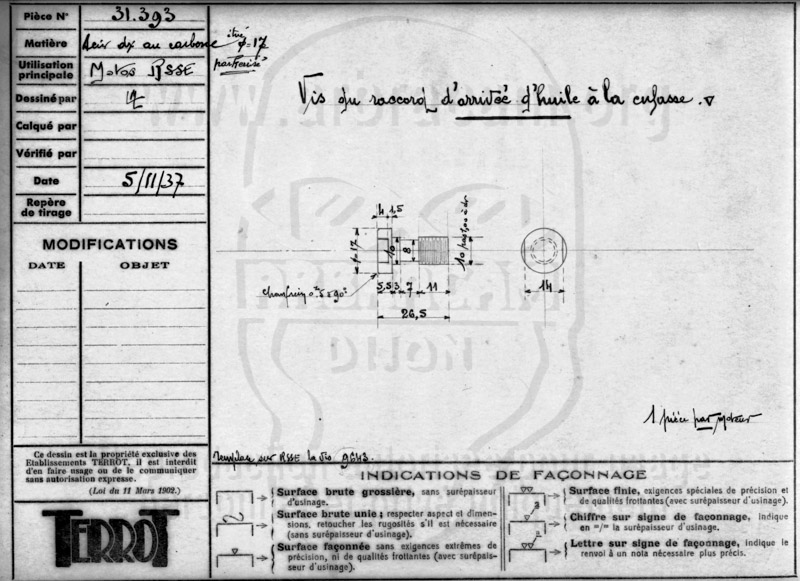 Pièce N° 31.393
Matière Acier dx au carbone étiré φ=17
parkerisé
Utilisation
principale Motos RSSE
Dessiné par
Calqué par
Vérifié par
Date 5/11/37
Repère
de tirage
MODIFICATIONS
DATE OBJET
Vis du raccord d'arrivée d'huile à la culasse. ▽
4 1,5
φ=17
10
8
10 pas 1,00 à dr
chanfrein 0,5 à 90°
5,5 3 7 11
26,5
14
1 pièce par moteur
Remplace sur RSSE la vis 9643.
Ce dessin est la propriété exclusive des
Etablissements TERROT, il est interdit
d'en faire usage ou de le communiquer
sans autorisation expresse.
(Loi du 11 Mars 1902.)
TERROT
INDICATIONS DE FAÇONNAGE
Surface brute grossière, sans surépaisseur
d'usinage.
Surface brute unie; respecter aspect et dimen-
sions, retoucher les rugosités s'il est nécessaire
(sans surépaisseur d'usinage).
Surface façonnée sans exigences extrêmes de
précision, ni de qualités frottantes (avec surépais-
seur d'usinage).
Surface finie, exigences spéciales de précision et
de qualités frottantes (avec surépaisseur d'usinage).
Chiffre sur signe de façonnage, indique
en m/m la surépaisseur d'usinage.
Lettre sur signe de façonnage, indique le
renvoi à un nota nécessaire plus précis.
DIJON